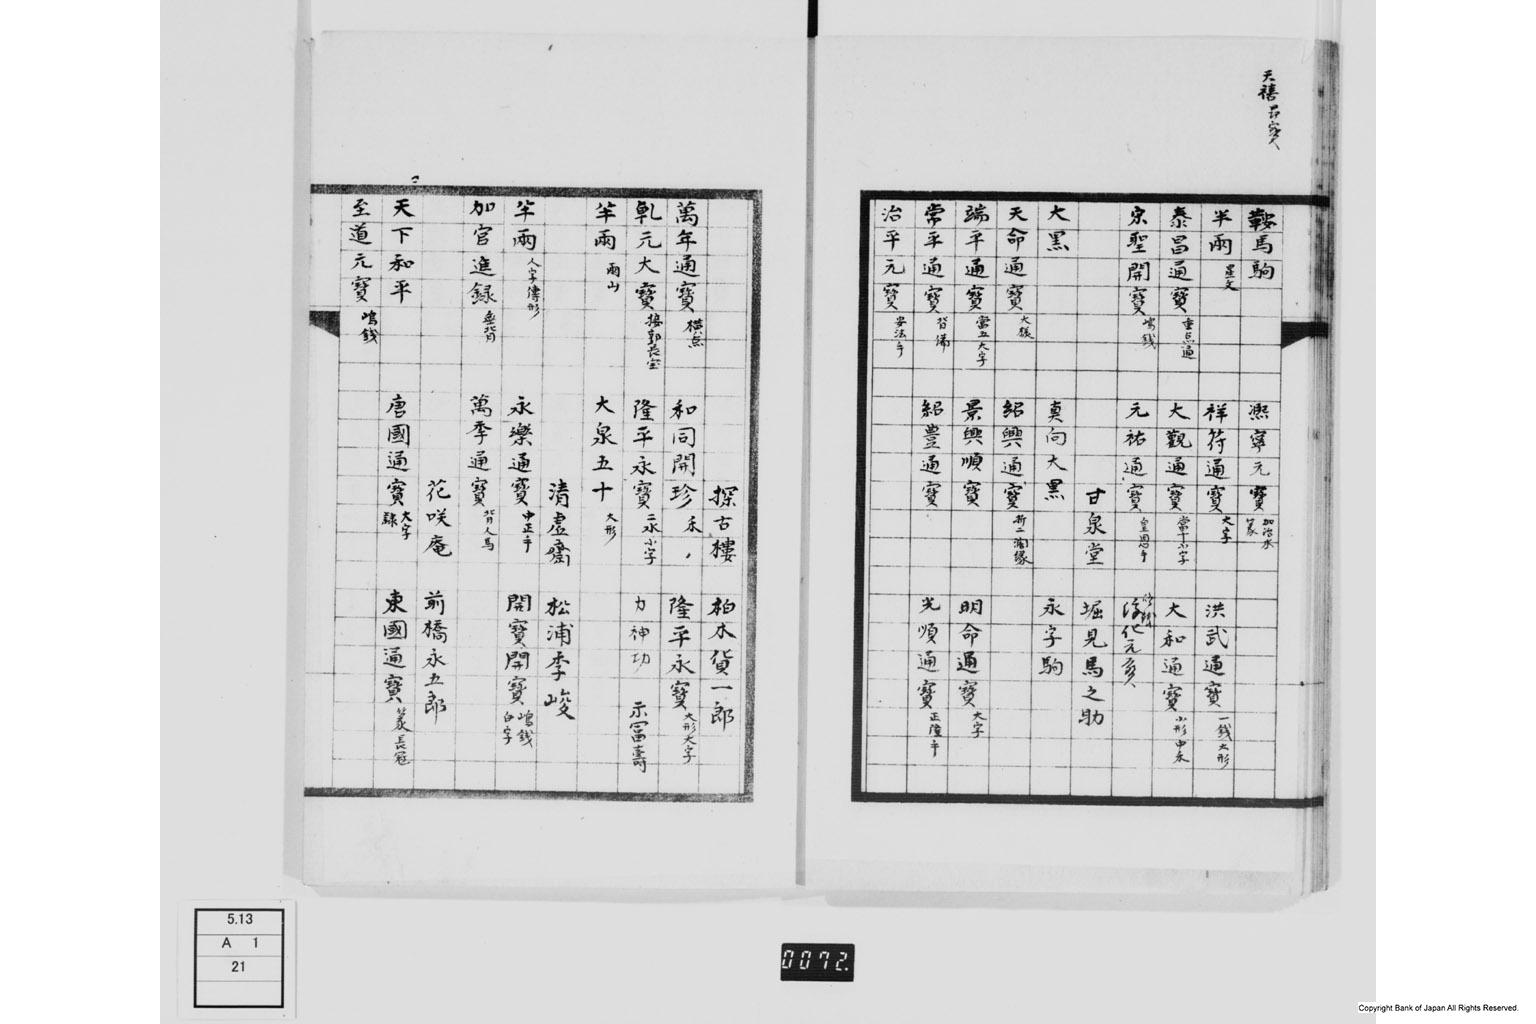 天禧
鞍馬駒
熙寧元寶 加治木 篆
半兩 星文
祥符通寶 大字
洪武通寶 一錢大形
泰昌通寶 重点通
大觀通寶 當十小字
大和通寶 小形中永
宋聖開寶 嶋錢
元祐通寶
淳化元寶
甘泉堂
堀見馬之助
大黒
真向大黒
永字駒
天命通寶 大様
紹興通寶 折二濶縁
端平通寶 當五大字
景興順寶
明命通寶 大字
常平通寶 背備
紹豊通寶
光順通寶 正隆手
治平元寶 安法手
探古樓
柏木貨一郎
萬年通寶 横点
和同開珎
隆平永寶 大形大字
乹元大寶 接郭長宝
隆平永寶 二水小字
力神功
示冨壽
半兩 兩山
大泉五十 大形
清虚齋
松浦李峻
半兩 人字傳形
永樂通寶 中正手
開寶開寶 嶋錢 白字
加官進録 無背
萬季通寶 背人馬
花咲庵
前橋永五郎
天下和平
唐國通寶 大字 隷
東國通寶 篆長冠
至道元寶 嶋錢
5.13
A 1
21
0072.
Copyright Bank of Japan All Rights Reserved.